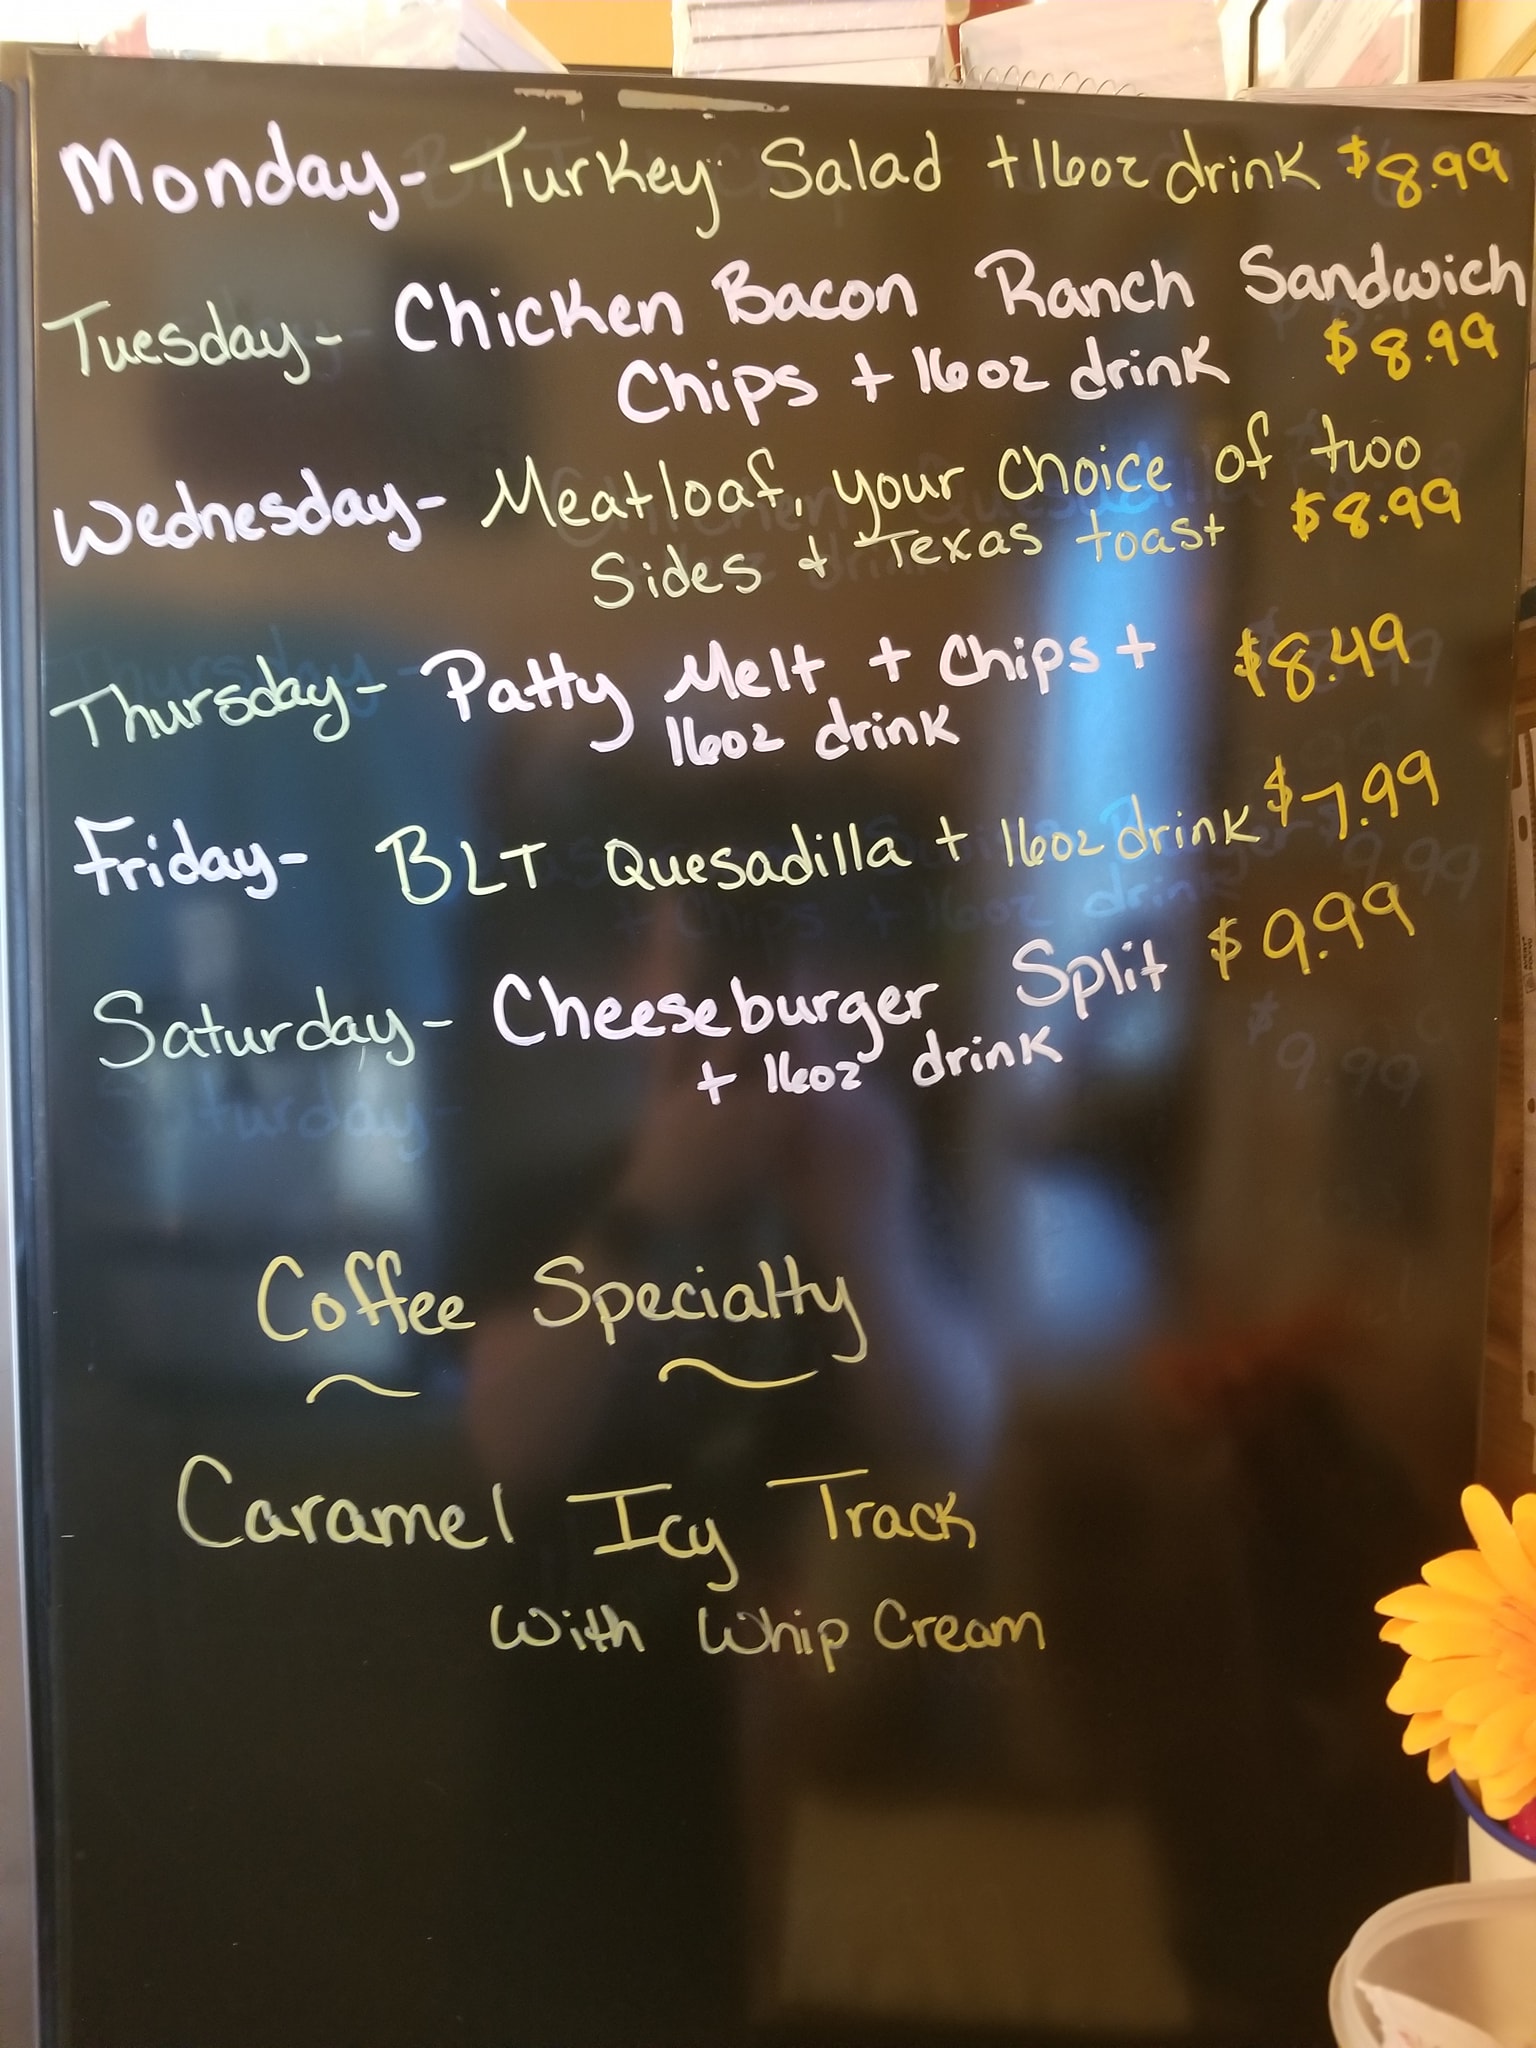 Monday- Turkey Salad +16oz drink $8.99
Tuesday- Chicken Bacon Ranch Sandwich
Chips + 16oz drink $8.99
Wednesday- Meatloaf, your choice of two
Sides + Texas toast $8.99
Thursday- Patty Melt + Chips + $8.49
16oz drink
Friday- BLT Quesadilla + 16oz drink $7.99
Saturday- Cheeseburger Split $9.99
+ 16oz drink
Coffee Specialty
Caramel Icy Track
With Whip Cream